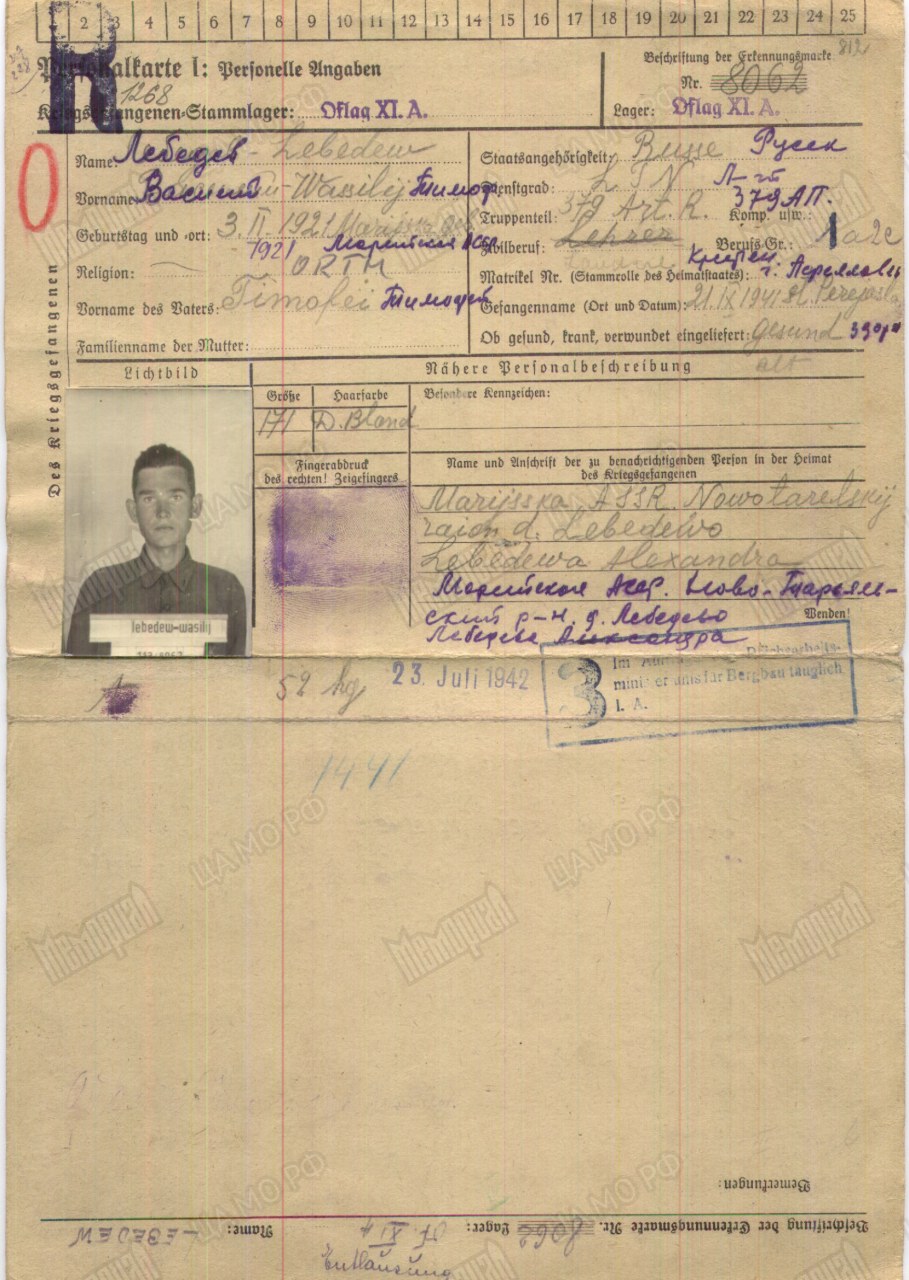 2 4 5 6 7 8 9 10 11 12 13 14 15 16 17 18 19 20 21 22 23 24 25
Personalkarte I: Personelle Angaben
1268
Kriegsgefangenen-Stammlager: Oflag XI. A.
Beschriftung der Erkennungsmarke
Nr. 8062
Lager: Oflag XI. A.
Des Kriegsgefangenen
Name: Лебедев - Lebedew
Vorname: Василий - Wasilij Тимоф
Geburtstag und -ort: 3. 1921
1921 Марийская Асср
Religion: ORTH
Vorname des Vaters: Timofei Тимофей
Familienname der Mutter:
Staatsangehörigkeit: Russe Русск
Dienstgrad: LTN Л-т
Truppenteil: 379 Art. R. Komp. usw.: 379 АП.
Zivilberuf: Lehrer Berufs-Gr.: 1a2c
Matrikel Nr. (Stammrolle des Heimatstaates):
Gefangennahme (Ort und Datum): 21. IX 1941
Ob gesund, krank, verwundet eingeliefert: gesund
Lichtbild
Nähere Personalbeschreibung
Größe Haarfarbe Besondere Kennzeichen:
171 D. Blond
Fingerabdruck
des rechten! Zeigefingers
Name und Anschrift der zu benachrichtigenden Person in der Heimat
des Kriegsgefangenen
Marijsska ASSR Nowotarelskij
raion d. Lebedewo
Lebedewa Alexandra
Марийская Асср. Ново-Тарьял-
ский р-н. д. Лебедево
Wenden!
Лебедева Александра
lebedew-wasilij
52 kg 23. Juli 1942
3 Im
für Bergbau tauglich
I. A.
1441
Bemerkungen:
Beschriftung der Erkennungsmarke Nr. 8062 Lager: Of. XI A Name: LEBEDEW
Entlausung
Мемориал
ЦАМО РФ